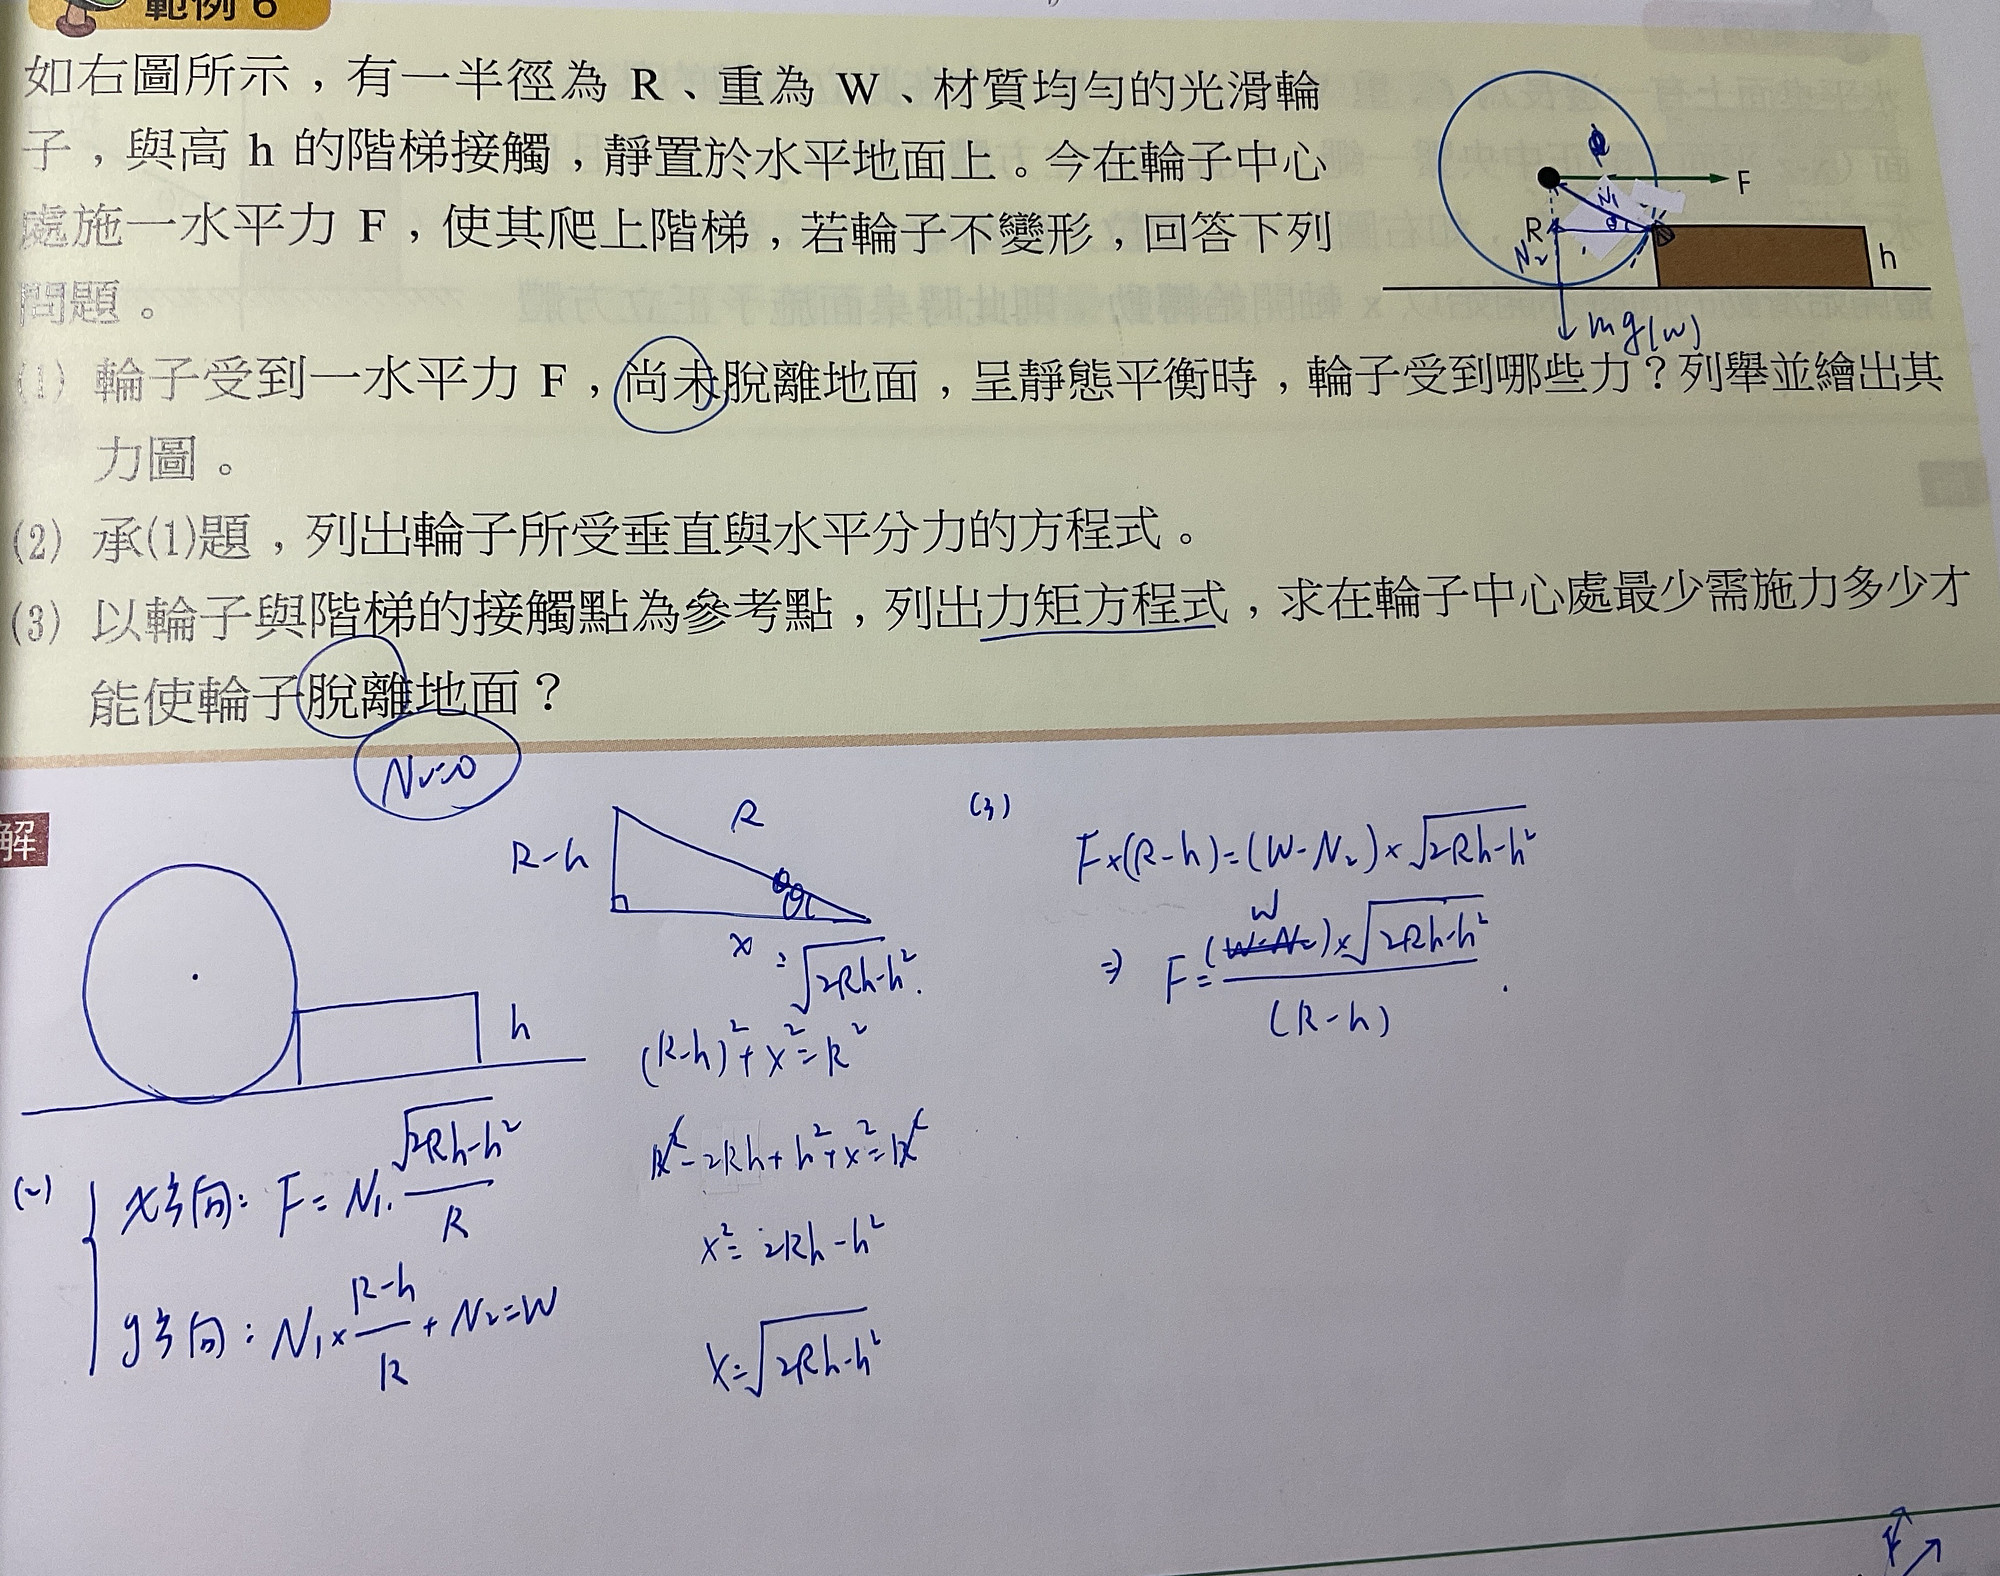 範例 6
如右圖所示，有一半徑為 R、重為 W、材質均勻的光滑輪
子，與高 h 的階梯接觸，靜置於水平地面上。今在輪子中心
處施一水平力 F，使其爬上階梯，若輪子不變形，回答下列
問題。
F
N₁
θ
R
N₂
h
mg(w)
(1) 輪子受到一水平力 F，尚未脫離地面，呈靜態平衡時，輪子受到哪些力？列舉並繪出其
力圖。
(2) 承(1)題，列出輪子所受垂直與水平分力的方程式。
(3) 以輪子與階梯的接觸點為參考點，列出力矩方程式，求在輪子中心處最少需施力多少才
能使輪子脫離地面？
N₂=0
解
h
R-h
R
θ
x = √(2Rh-h²).
(R-h)²+x²=R²
R²-2Rh+h²+x²=R²
x²=2Rh-h²
x=√(2Rh-h²)
(2) x方向: F=N₁·√(2Rh-h²)/R
y方向: N₁×(R-h)/R+N₂=W
(3)
F×(R-h)=(W-N₂)×√(2Rh-h²)
⇒ F=(W)×√(2Rh-h²)/(R-h).